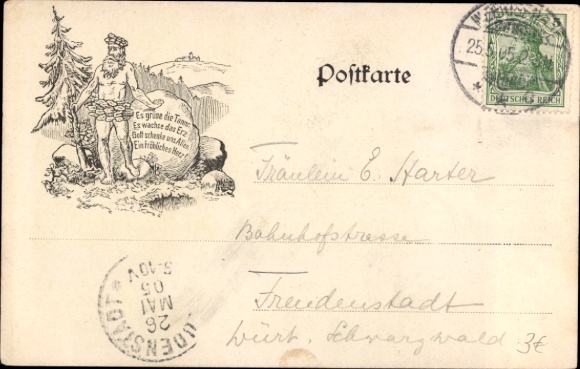 Postkarte
Es grüne die Tanne,
Es wachse das Erz,
Gott schenke uns Allen
Ein fröhliches Herz.
25. 05
DEUTSCHES REICH
Fräulein E. Harter
Bahnhofstrasse
Freudenstadt
Würt. Schwarzwald
3€
UDENSTADT
26
MAI
05